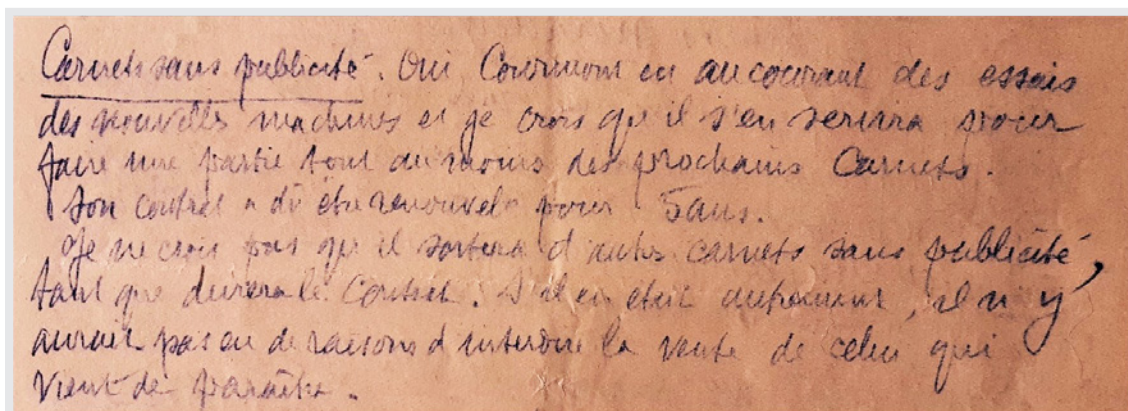 Carnets sans publicité. Oui Courmont en au courant des essais
des nouvelles machines et je crois qu'il s'en servira pour
faire une partie tout au moins des prochains Carnets.
Son contrat a dû être renouvelé pour 5 ans.
Je ne crois pas qu'il sortira d'autres carnets sans publicité,
tant que durera le Contrat. S'il en était autrement, il n'y
aurait pas eu de raisons d'interdire la vente de celui qui
vient de paraître.